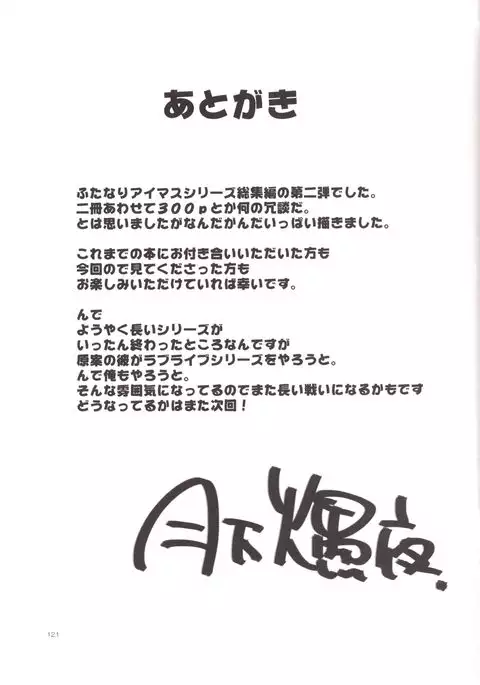 あとがき
ふたなりアイマスシリーズ総集編の第二弾でした。
二冊あわせて300pとか何の冗談だ。
とは思いましたがなんだかんだいっぱい描きました。
これまでの本にお付き合いいただいた方も
今回ので見てくださった方も
お楽しみいただけていれば幸いです。
んで
ようやく長いシリーズが
いったん終わったところなんですが
原案の彼がラブライブシリーズをやろうと。
んで俺もやろうと。
そんな雰囲気になってるのでまた長い戦いになるかもです
どうなってるかはまた次回！
月下
121